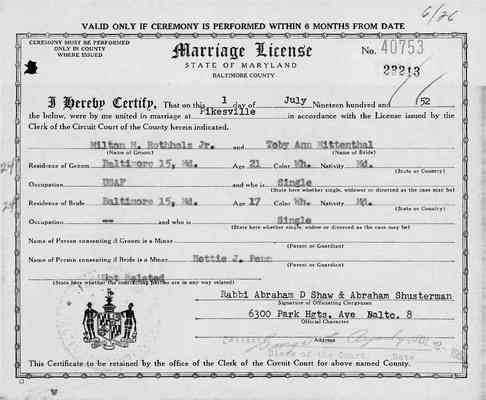 6/26
VALID ONLY IF CEREMONY IS PERFORMED WITHIN 6 MONTHS FROM DATE
CEREMONY MUST BE PERFORMED
ONLY IN COUNTY
WHERE ISSUED
Marriage License
No. 40753
STATE OF MARYLAND
BALTIMORE COUNTY
I Hereby Certify, That on this 1 day of July Nineteen hundred and 52
the below, were by me united in marriage at Pikesville in accordance with the License issued by the
Clerk of the Circuit Court of the County herein indicated.
Milton M. Rothholz Jr. and Toby Ann Mittenthal
(Name of Groom) (Name of Bride)
Residence of Groom Baltimore 15, Md. Age 21 Color Wh. Nativity Md.
(State or Country)
Occupation USAF and who is Single
(State here whether single, widower or divorced as the case may be)
Residence of Bride Baltimore 15, Md. Age 17 Color Wh. Nativity Md.
(State or Country)
Occupation -- and who is Single
(State here whether single, widow or divorced as the case may be)
Name of Person consenting if Groom is a Minor
(Parent or Guardian)
Name of Person consenting if Bride is a Minor Nettie J. Penn
(Parent or Guardian)
Not Related
(State here whether the contracting parties are in any way related)
Rabbi Abraham D Shaw & Abraham Shusterman
Signature of Officiating Clergyman
6300 Park Hgts. Ave Balto. 8
Official Character
Address
Clerk of the Court Date
This Certificate to be retained by the office of the Clerk of the Circuit Court for above named County.